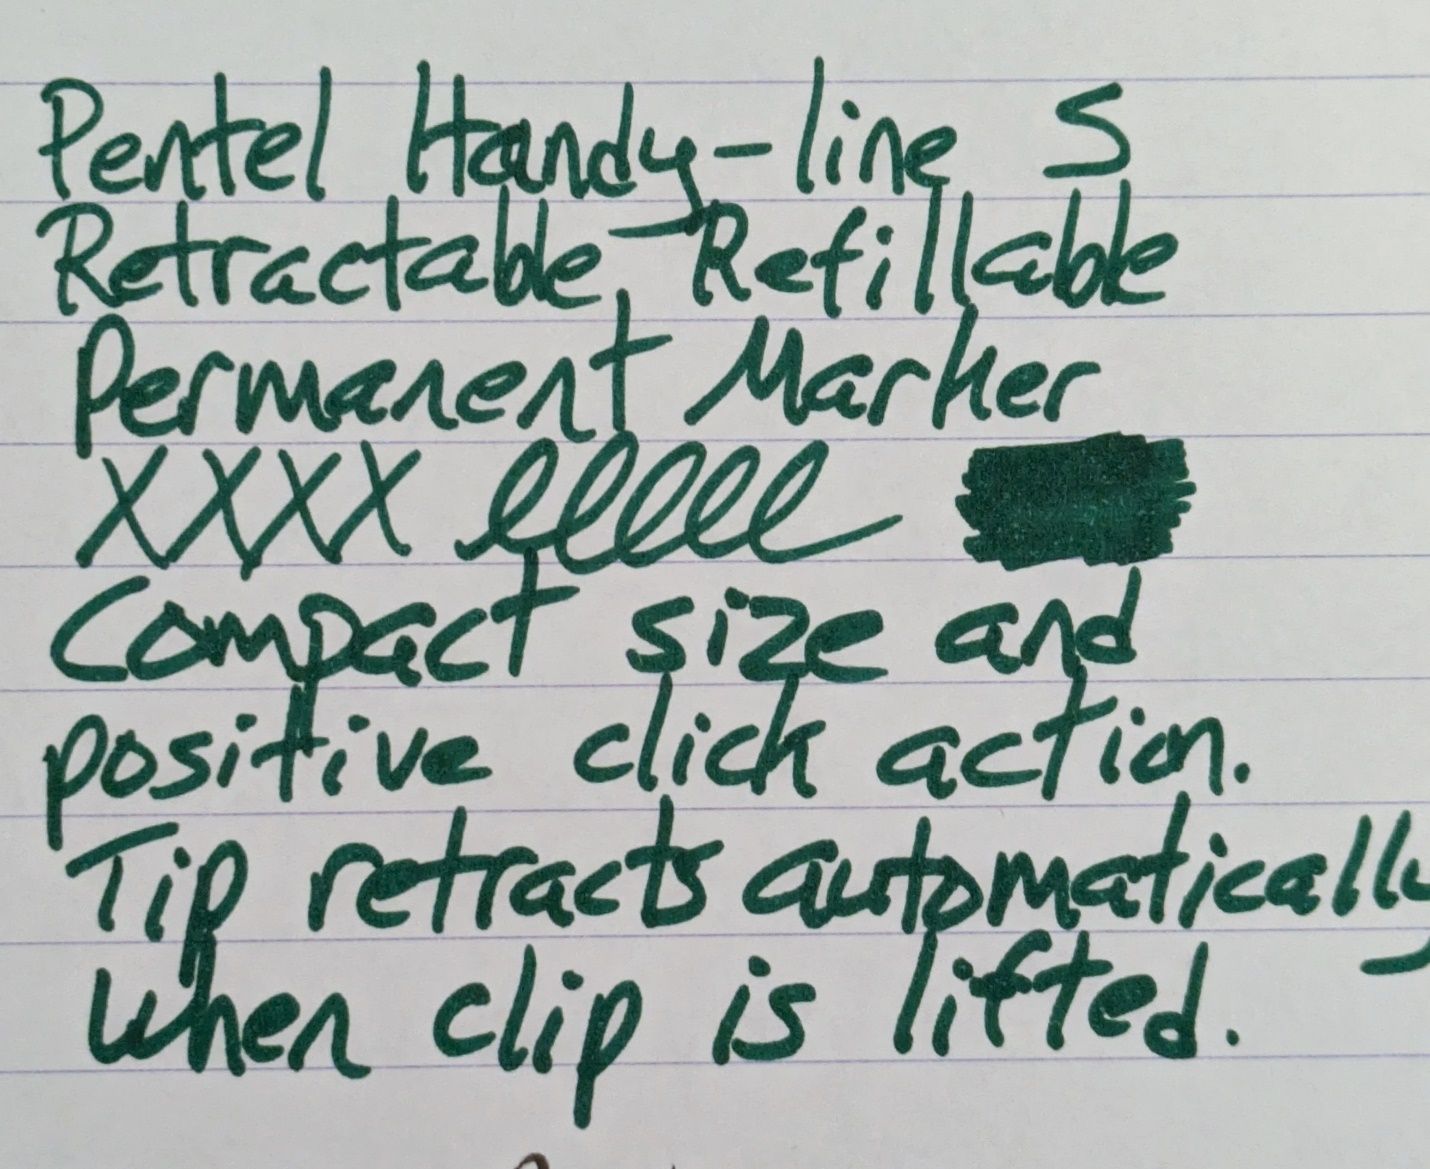 Pentel Handy-line S
Retractable, Refillable
Permanent Marker
XXXX elllll
Compact size and
positive click action.
Tip retracts automatically
when clip is lifted.